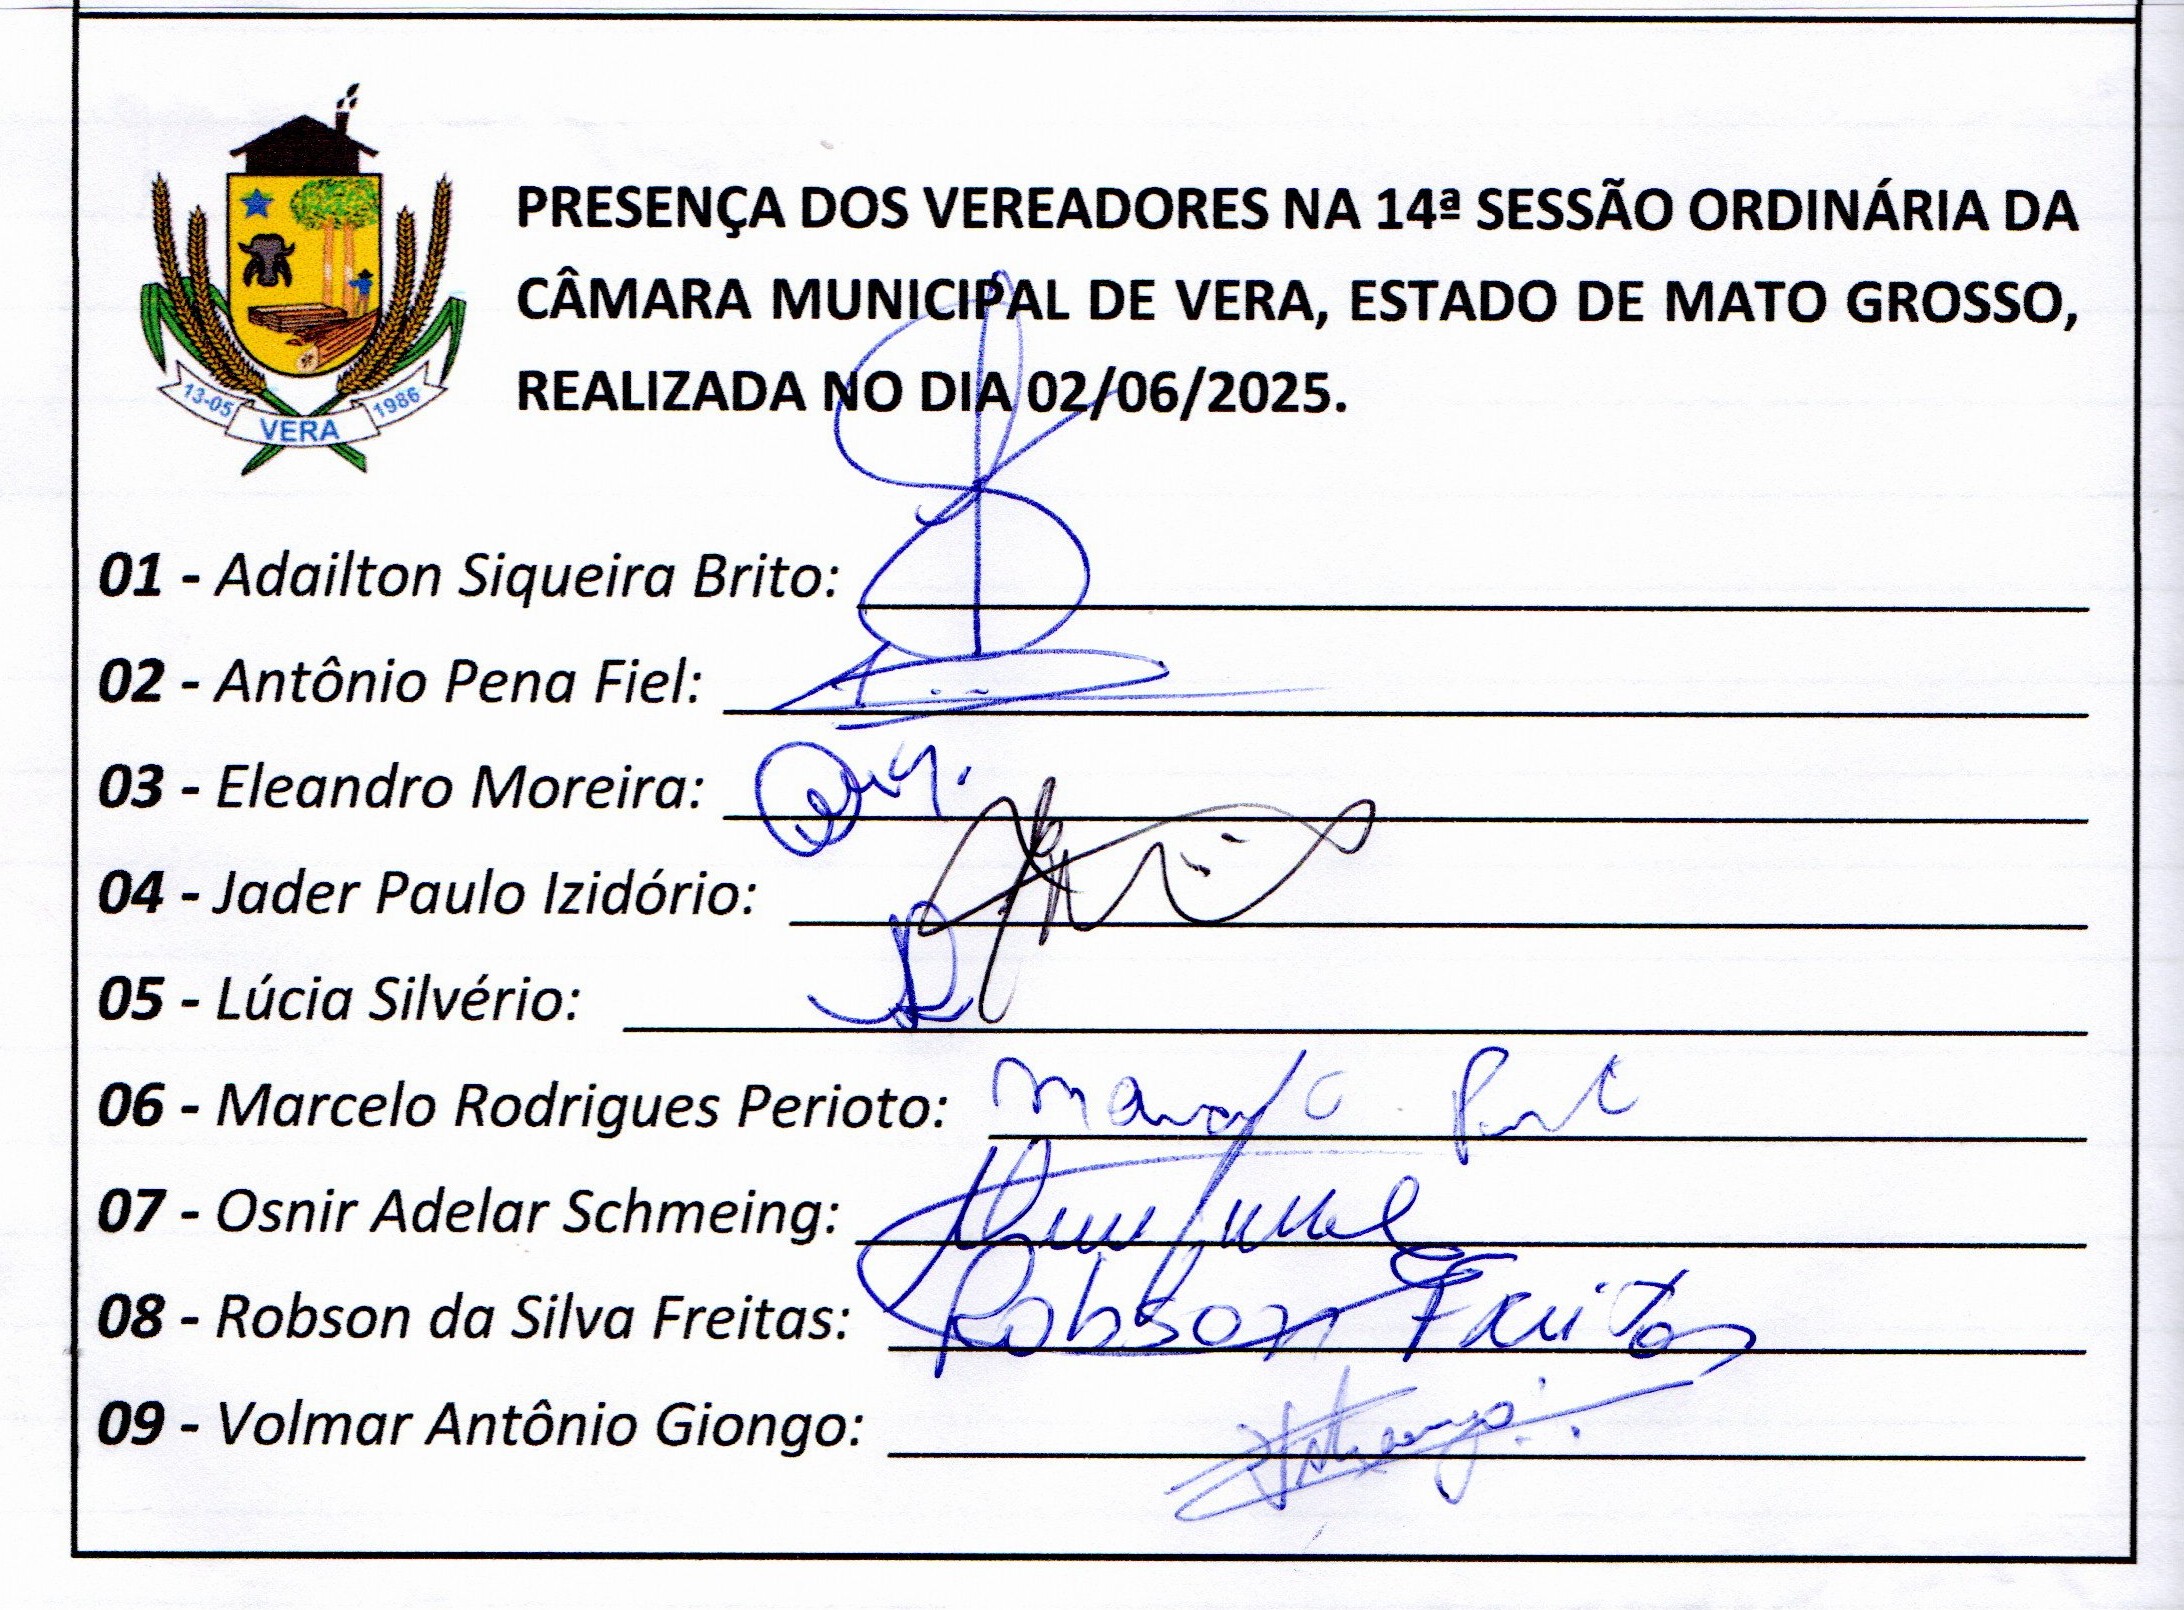 PRESENÇA DOS VEREADORES NA 14ª SESSÃO ORDINÁRIA DA
CÂMARA MUNICIPAL DE VERA, ESTADO DE MATO GROSSO,
REALIZADA NO DIA 02/06/2025.
13-05 VERA 1986
01 - Adailton Siqueira Brito:
02 - Antônio Pena Fiel:
03 - Eleandro Moreira:
04 - Jader Paulo Izidório:
05 - Lúcia Silvério:
06 - Marcelo Rodrigues Perioto:
07 - Osnir Adelar Schmeing:
08 - Robson da Silva Freitas: Robson Freitas
09 - Volmar Antônio Giongo: